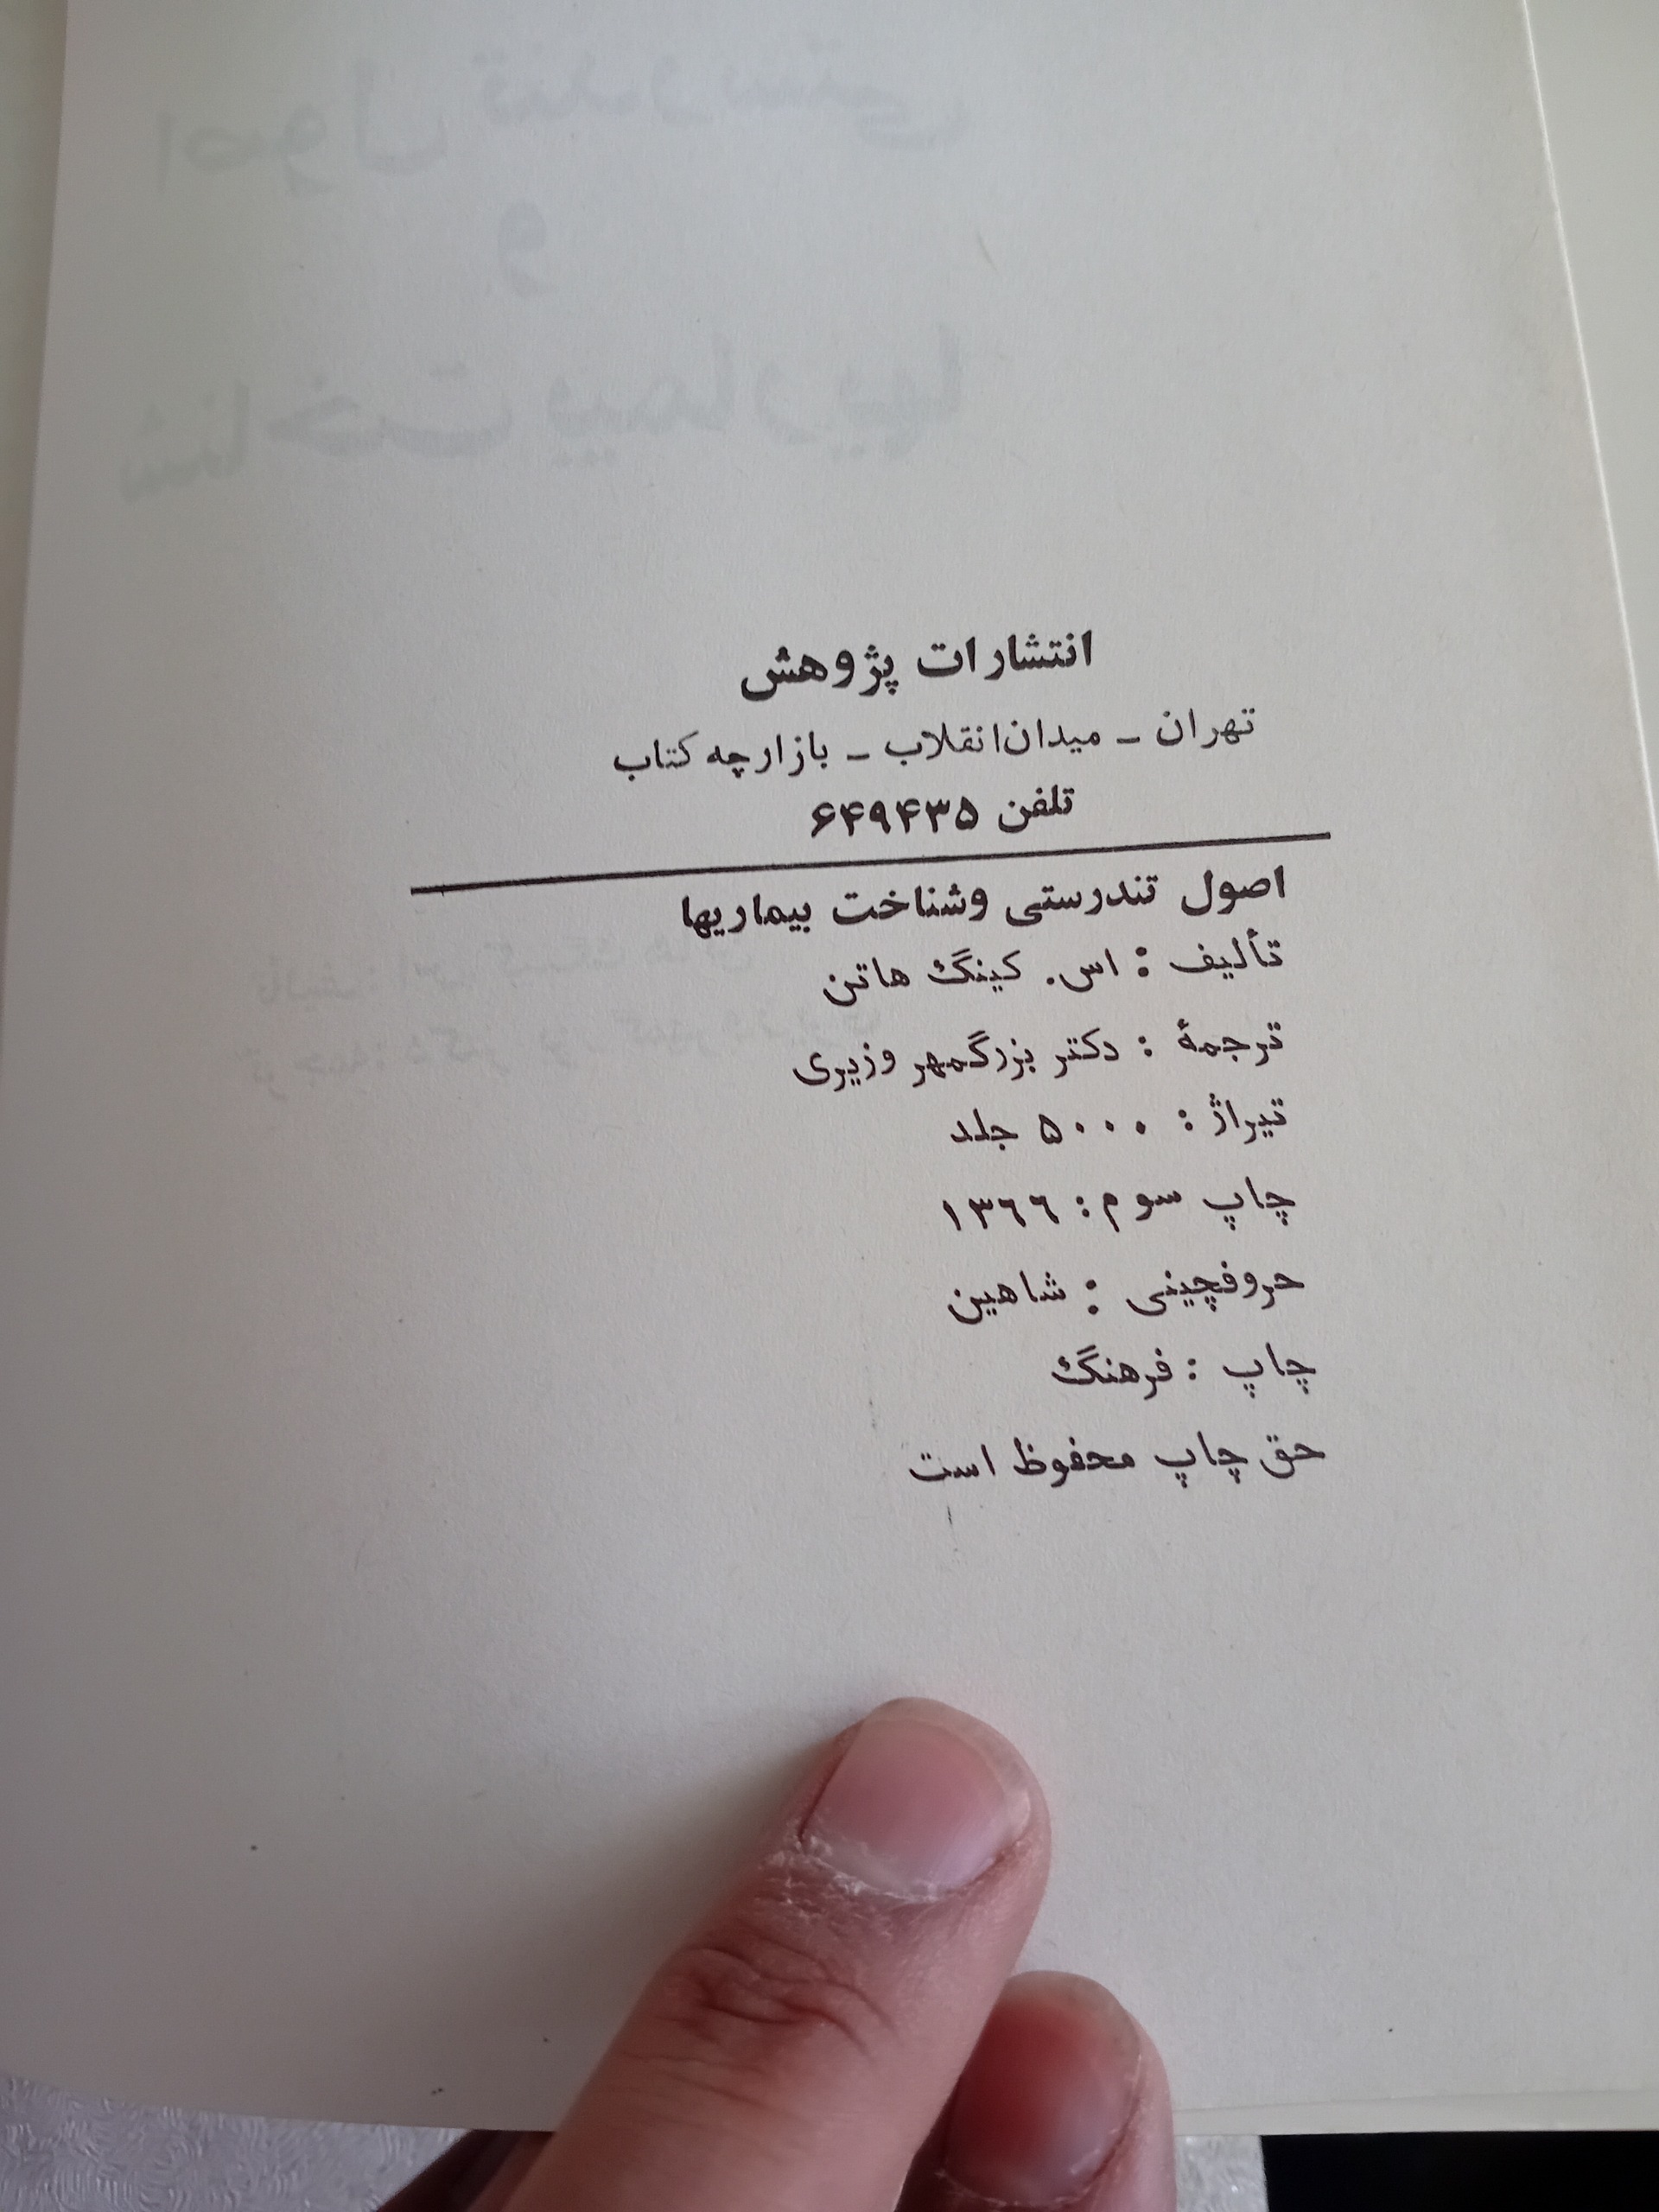 انتشارات پژوهش
تهران - میدان انقلاب - بازارچه کتاب
تلفن ۶۴۹۴۳۵
اصول تندرستی وشناخت بیماریها
تألیف : اس. کینگ هاتن
ترجمهٔ : دکتر بزرگمهر وزیری
تیراژ : ۵۰۰۰ جلد
چاپ سوم : ۱۳۶۶
حروفچینی : شاهین
چاپ : فرهنگ
حق چاپ محفوظ است